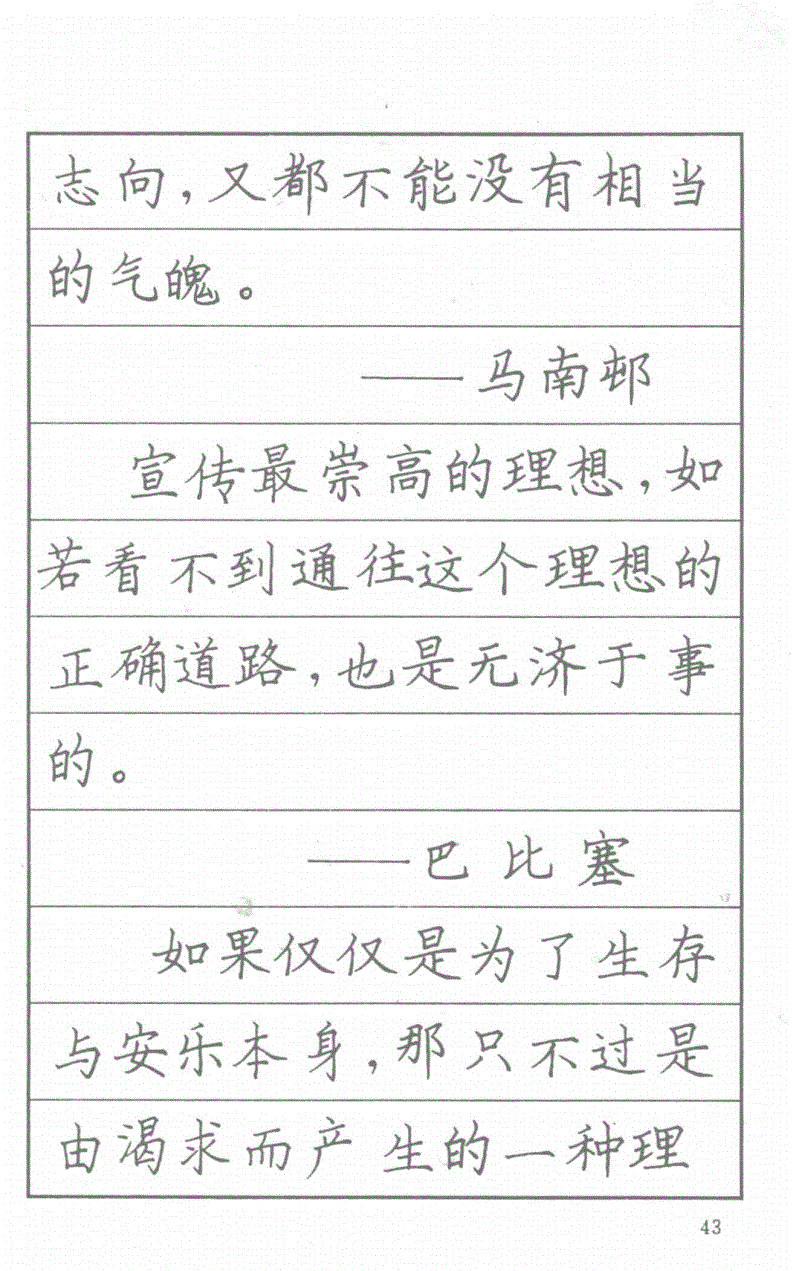 志向，又都不能没有相当
的气魄。
——马南邨
宣传最崇高的理想，如
若看不到通往这个理想的
正确道路，也是无济于事
的。
——巴比塞
如果仅仅是为了生存
与安乐本身，那只不过是
由渴求而产生的一种理
43